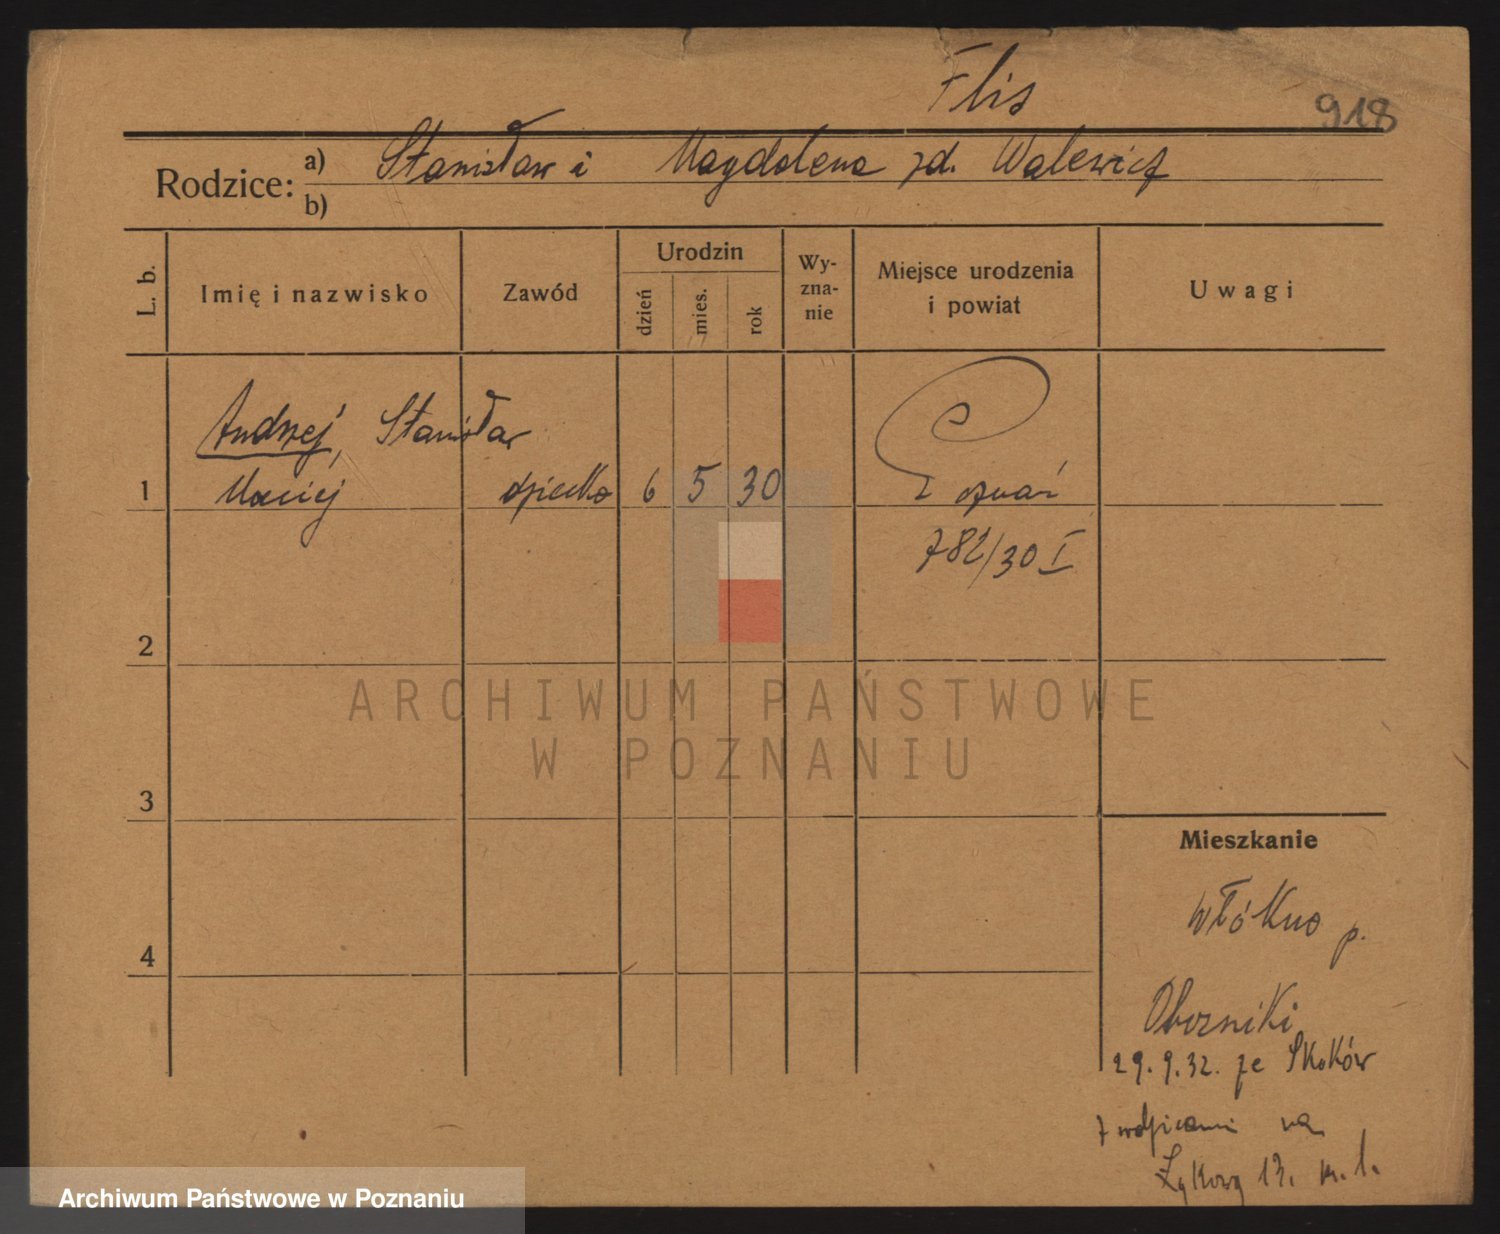 Flis
918
Rodzice:
a) Stanisław i Magdalena zd. Walewicz
b)
L. b.
Imię i nazwisko
Zawód
Urodzin
dzień
mies.
rok
Wy-
zna-
nie
Miejsce urodzenia
i powiat
Uwagi
Andrzej, Stanisław
1 Maciej dziecko 6 5 30 Poznań
782/30 I
2
ARCHIWUM PAŃSTWOWE
W POZNANIU
3
Mieszkanie
4
Włókno p.
Oborniki
29.9.32. ze Skoków
z rodzicami na
Łąkową 13. m. 1.
Archiwum Państwowe w Poznaniu